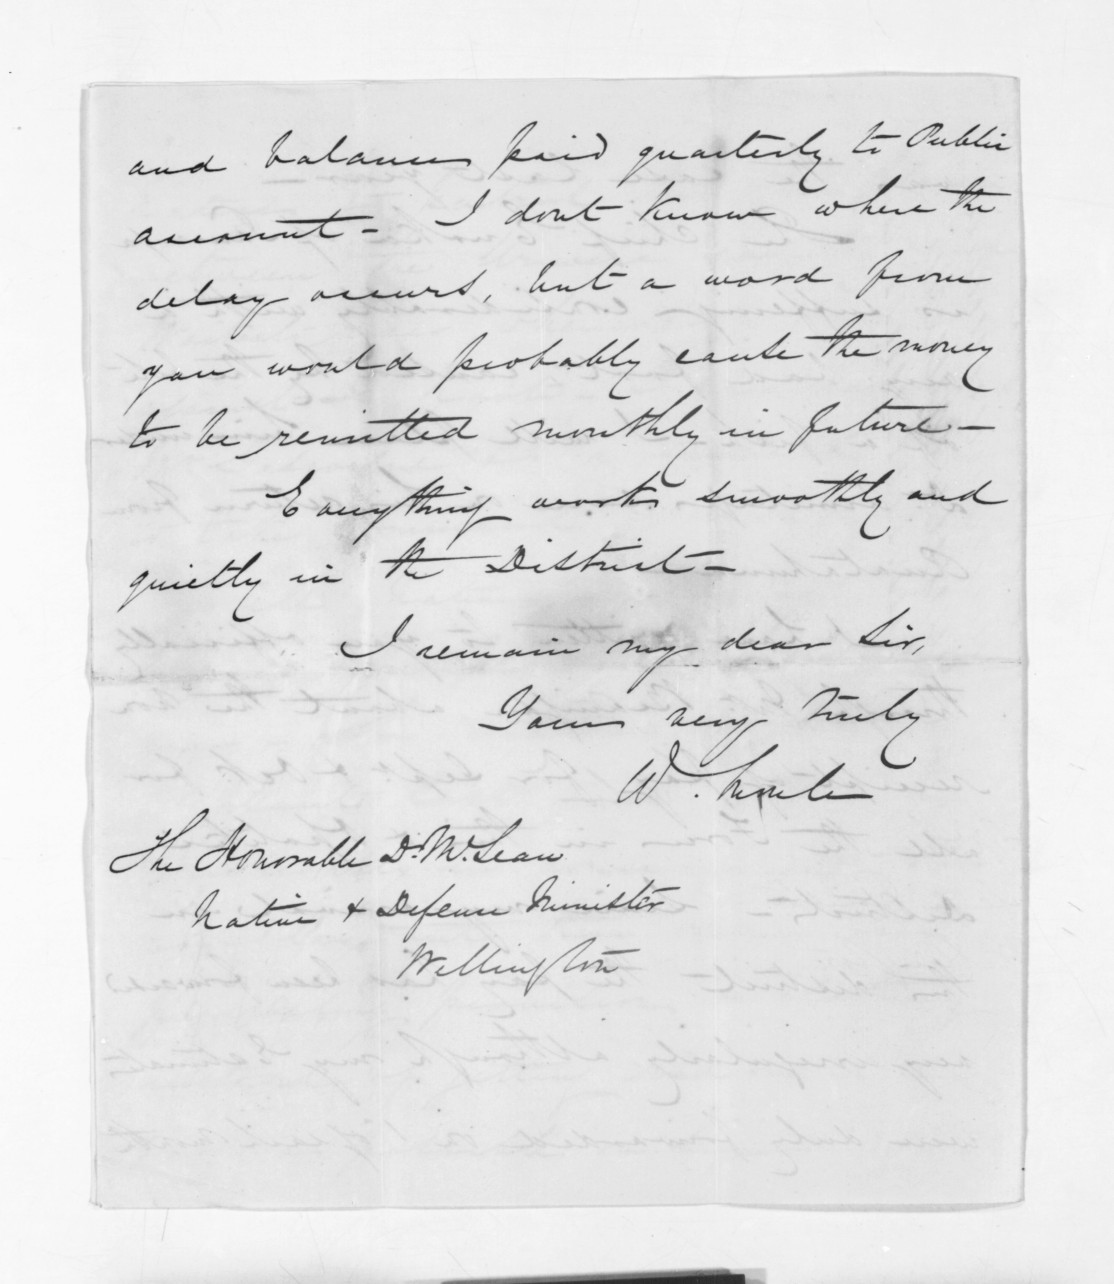 and balances paid quarterly to Public
account - I dont know where the
delay occurs, but a word from
you would probably cause the money
to be remitted monthly in future -
Everything works smoothly and
quietly in the District -
I remain my dear Sir,
Yours very truly
W.
The Honorable D. McLean
Native & Defence Minister
Wellington